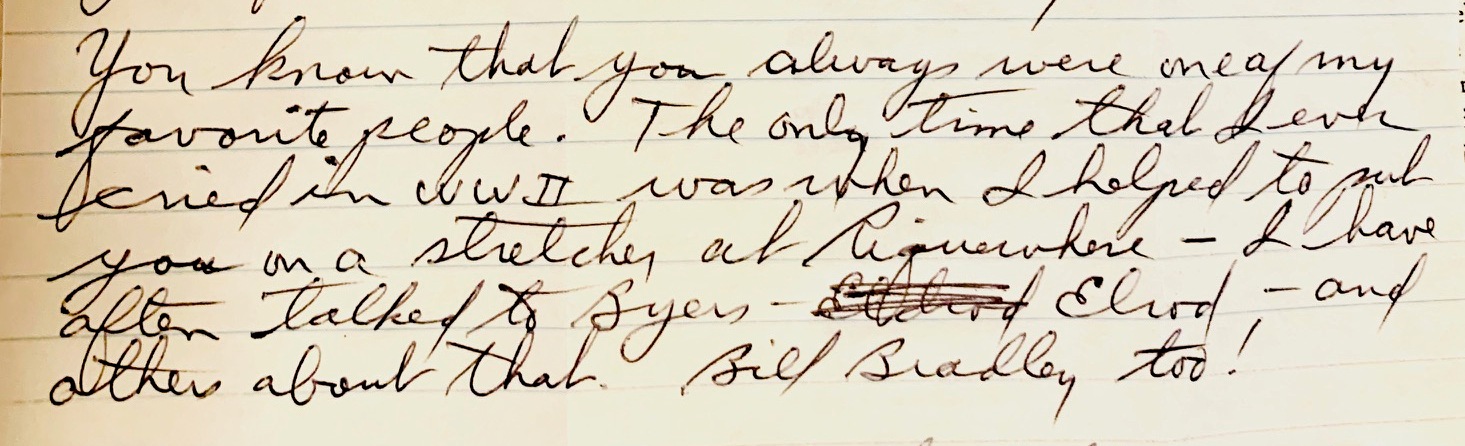 You know that you always were one of my
favorite people. The only time that I ever
cried in WWII was when I helped to put
you on a stretcher at Riquewhere – I have
often talked to Byers – Elrod, – and
others about that. Bill Bradley too!